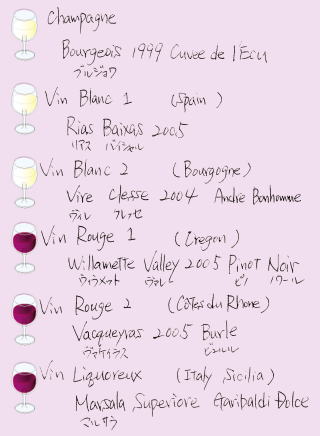 Champagne
Bourgeois 1999 Cuvee de l'Ecu
ブルジョワ
Vin Blanc 1 (Spain)
Rias Baixas 2005
リアス バイシャル
Vin Blanc 2 (Bourgogne)
Vire Clesse 2004 Andre Bonhomme
ヴィレ クレッセ
Vin Rouge 1 (Oregon)
Willamette Valley 2005 Pinot Noir
ウィラメット ヴァレ ピノ ノワール
Vin Rouge 2 (Côtes du Rhone)
Vacqueyras 2005 Burle
ヴァケイラス ビュルル
Vin Liquoreux (Italy, Sicilia)
Marsala Superiore Garibaldi Dolce
マルサラ